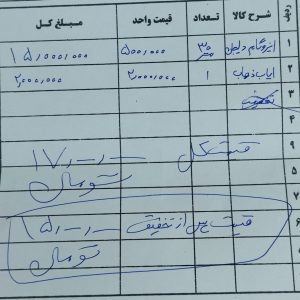 ردیف شرح کالا تعداد قیمت واحد مبلغ کل
۱ ایزوگام دلیجان ۳۰ ۵۰۰,۰۰۰ ۱۵,۰۰۰,۰۰۰
۲ ایاب ذهاب ۱ ۲,۰۰۰,۰۰۰ ۲,۰۰۰,۰۰۰
۳
۴
۹ قیمت کل ۱۷,۰۰۰,۰۰۰
۵ تومان
۷
۶ قیمت پس از تخفیف ۱۵,۰۰۰,۰۰۰
تومان